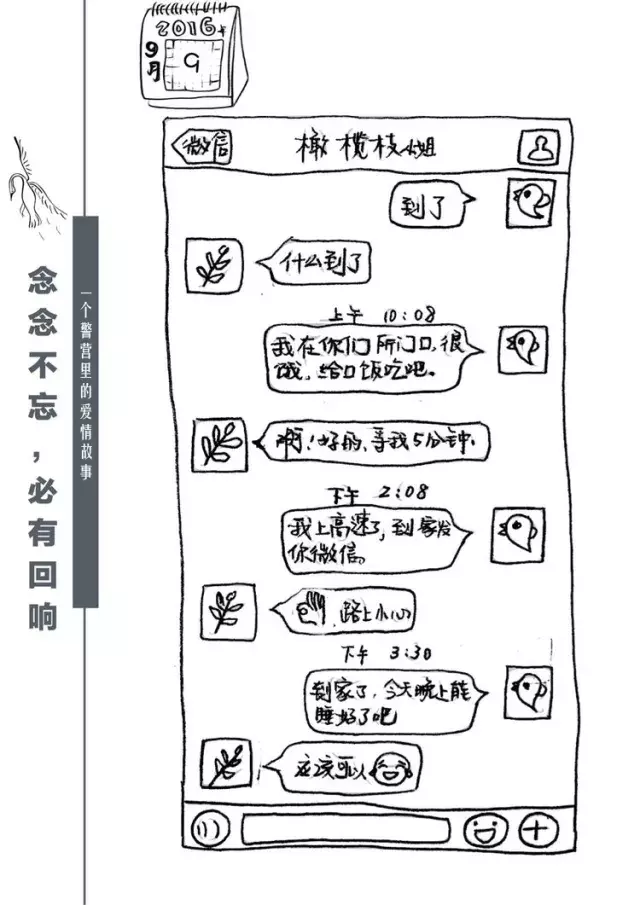 2016年
9月
9
念念不忘，必有回响
一个警营里的爱情故事
微信
橄榄枝小姐
到了
什么到了
上午 10:08
我在你们所门口,很
饿,给口饭吃吧。
啊!好的,等我5分钟。
下午 2:08
我上高速了,到家发
你微信。
路上小心
下午 3:30
到家了,今天晚上能
睡好了吧
应该可以